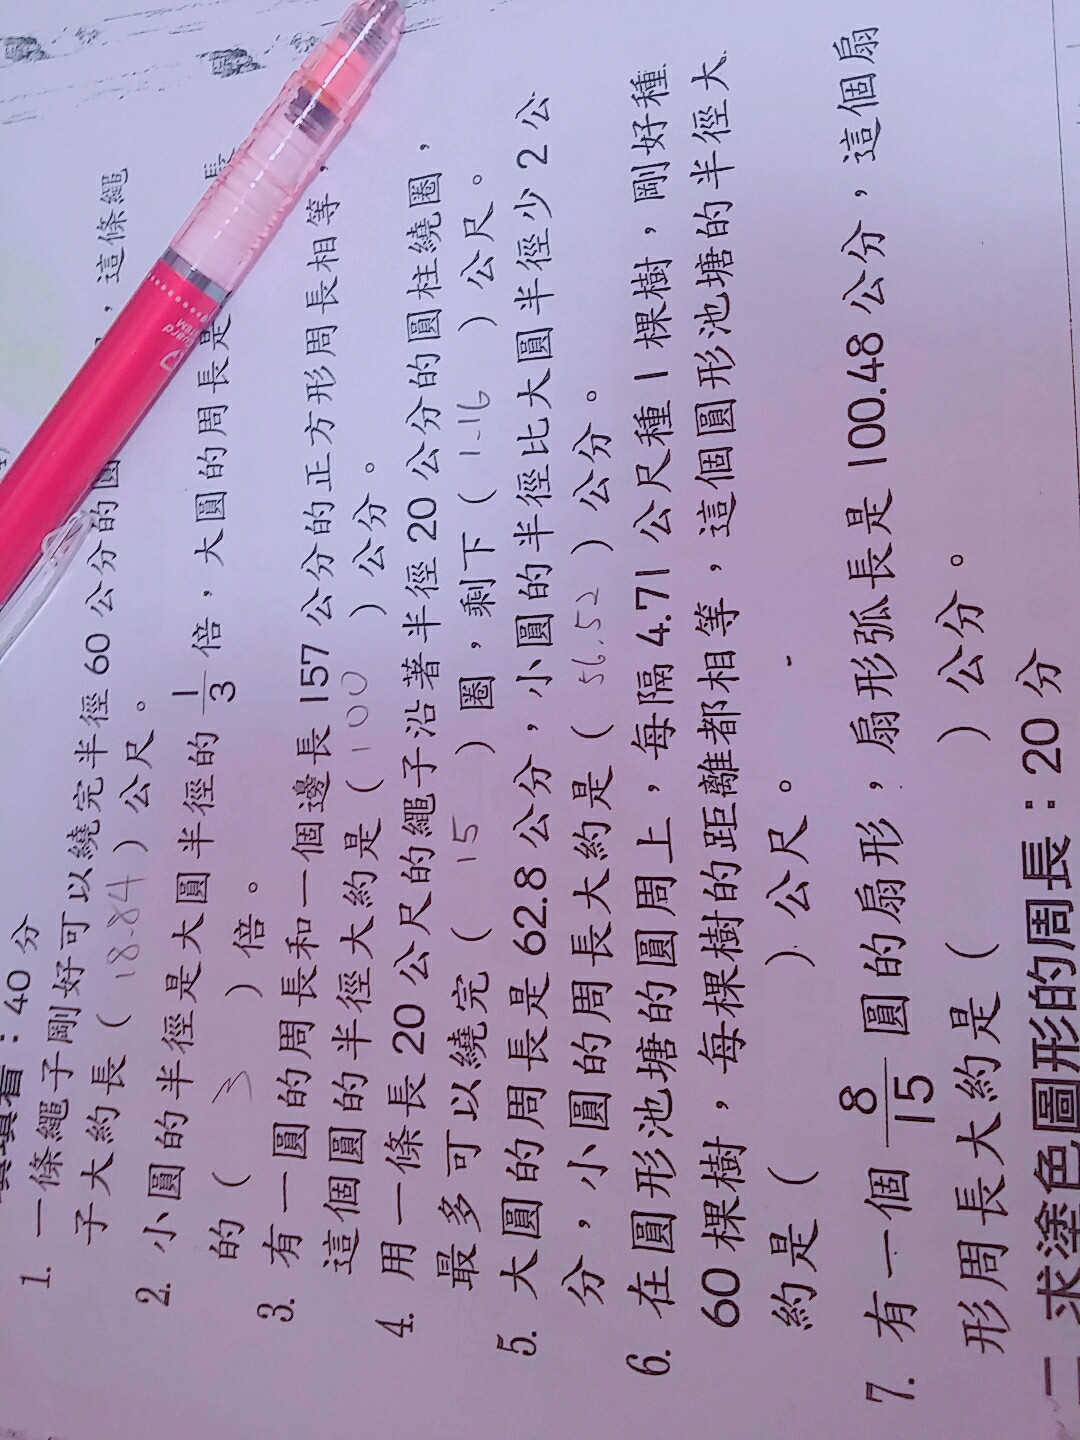 ：40分
1. 一條繩子剛好可以繞完半徑60公分的圓，這條繩
子大約長（18.84）公尺。
2. 小圓的半徑是大圓半徑的1/3倍，大圓的周長是
的（3）倍。
3. 有一圓的周長和一個邊長157公分的正方形周長相等，
這個圓的半徑大約是（100）公分。
4. 用一條長20公尺的繩子沿著半徑20公分的圓柱繞圈，
最多可以繞完（15）圈，剩下（1.16）公尺。
5. 大圓的周長是62.8公分，小圓的半徑比大圓半徑少2公
分，小圓的周長大約是（56.52）公分。
6. 在圓形池塘的圓周上，每隔4.71公尺種1棵樹，剛好種
60棵樹，每棵樹的距離都相等，這個圓形池塘的半徑大
約是（ ）公尺。
7. 有一個8/15圓的扇形，扇形弧長是100.48公分，這個扇
形周長大約是（ ）公分。
二 求塗色圖形的周長：20分